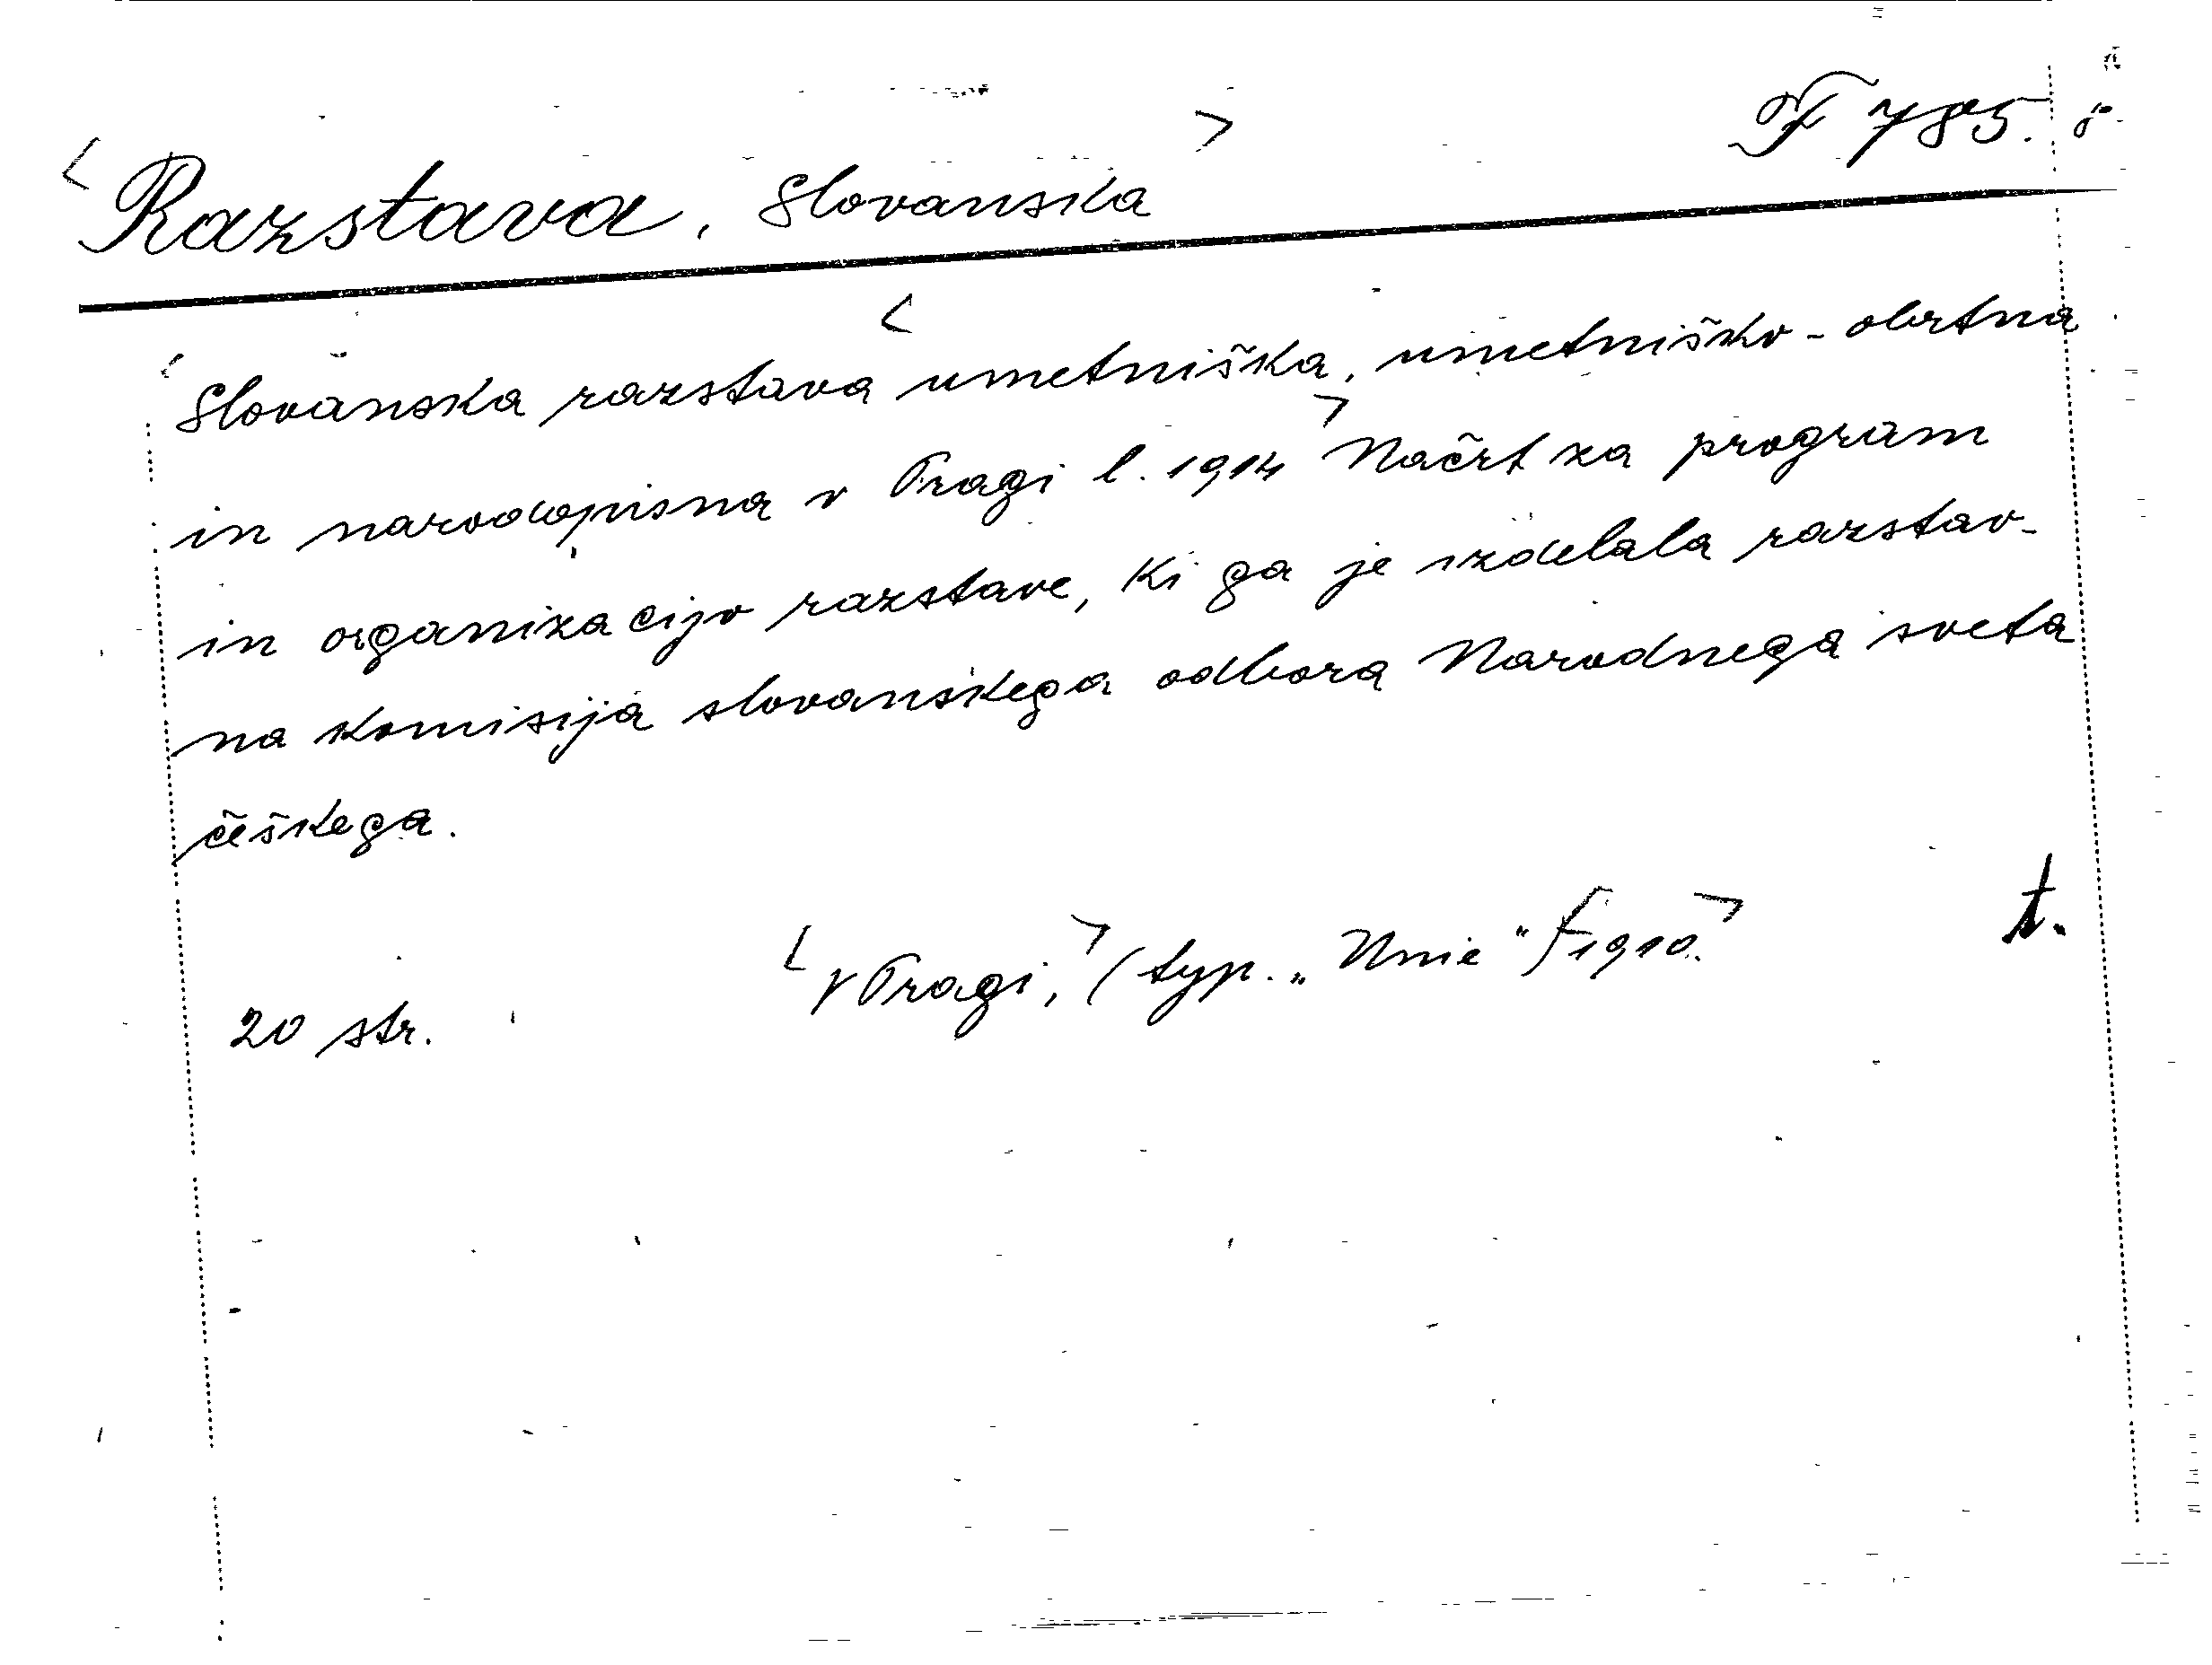 F 785.
Razstava, Slovanska
Slovanska razstava umetniška, umetniško-obrtna
in narodopisna v Pragi l. 1914 Načrt za program
in organizacijo razstave, ki ga je izdelala razstav-
na komisija slovanskega odbora Narodnega sveta
češkega.
V Pragi, (typ. „Unie") 1910.
t.
20 str.